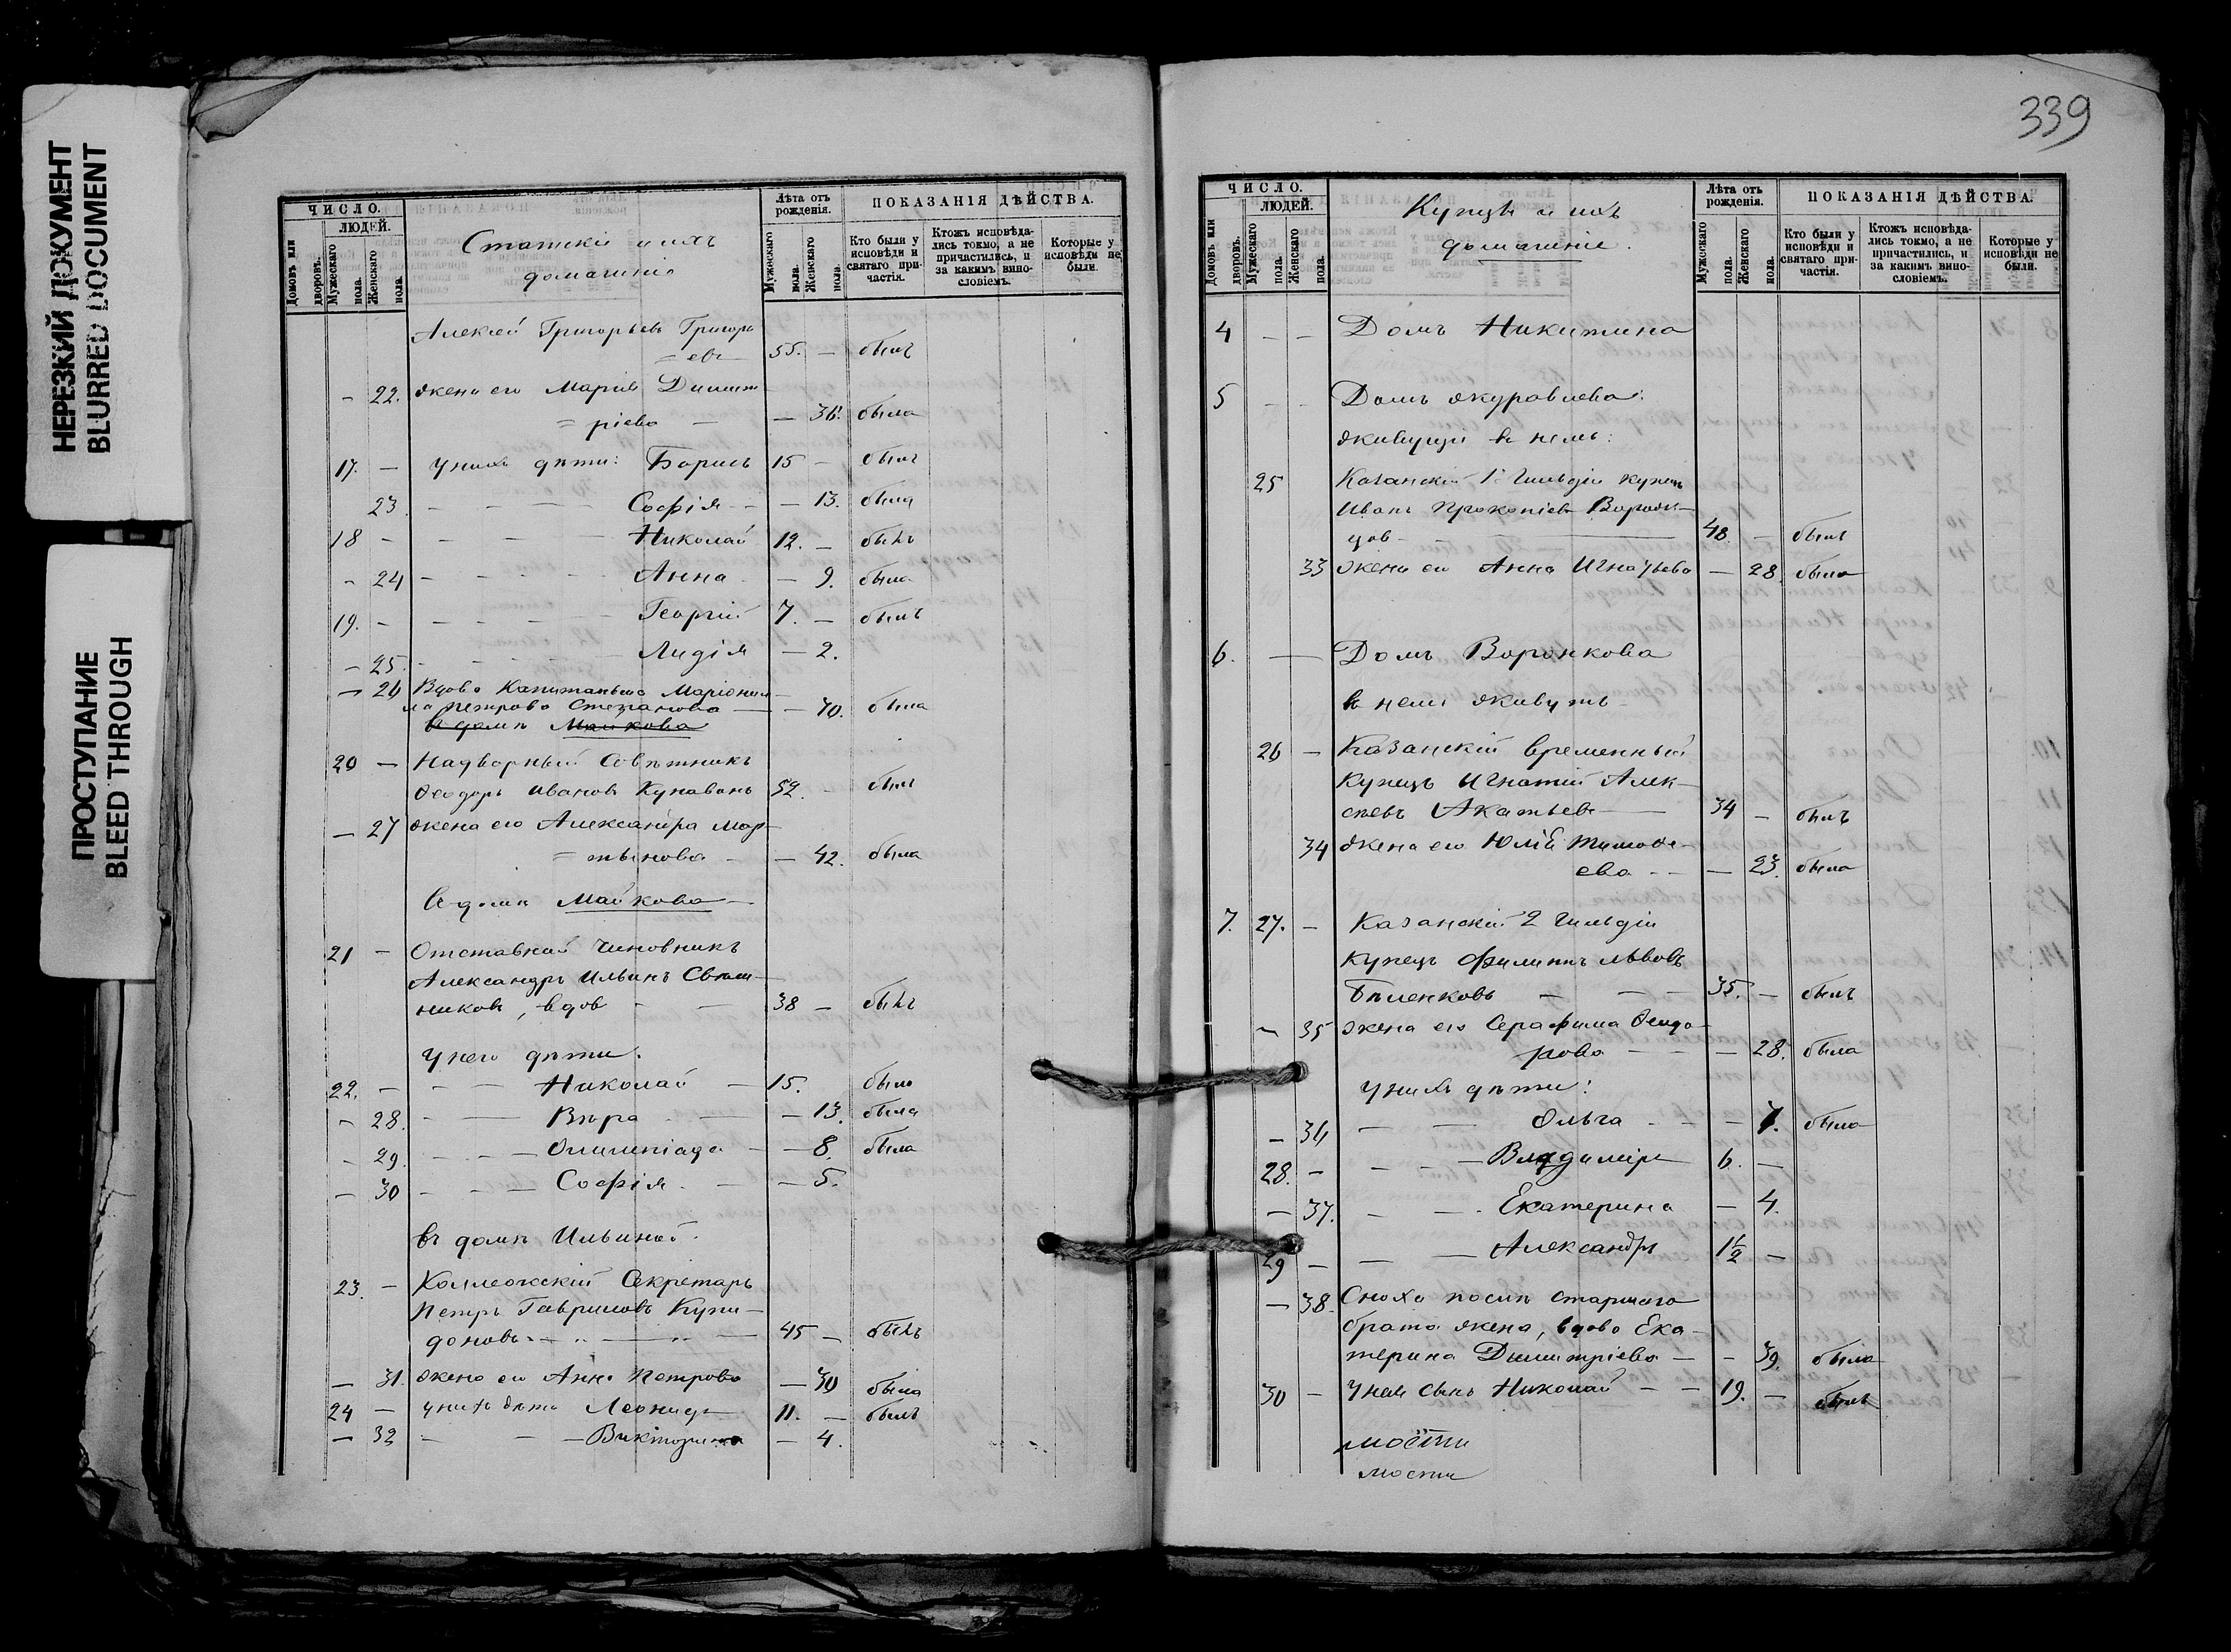 НЕРЕЗКИЙ ДОКУМЕНТ
BLURRED DOCUMENT
ПРОСТУПАНИЕ
BLEED THROUGH
ЧИСЛО.
ЛЮДЕЙ.
Домовъ или дворовъ.
Мужескаго пола.
Женскаго пола.
Статскіе и ихъ
домашніе
Лѣта отъ рожденія.
Мужескаго пола.
Женскаго пола.
ПОКАЗАНІЯ ДѢЙСТВА.
Кто были у исповѣди и святаго при-частія.
Ктожъ исповѣда-лись токмо, а не причастились, и за какимъ вино-словіемъ.
Которые у исповѣди не были.
Алексей Григорьевъ Григорь
= евъ — 55. — былъ
- 22. жена его Марія Димит
= ріева — — 36. была
17. — у нихъ дѣти: Борисъ 15 — былъ
23. — — — — Софія — — 13. была
18 — — — — Николай 12. — былъ
- 24 — — — — Анна — 9. была
19. — — — — Георгій 7. — былъ
- 25. — — — — Лидія — 2.
— 26 Вдова Капитанша
Петрова Степанова — — 70. была
въ домѣ Майкова
20 — Надворный Совѣтникъ
Ѳеодоръ Ивановъ 52. — былъ
— 27 жена его Александра Мар-
= тынова — — 42. была
Въ домѣ Майкова —
21 — Отставной Чиновникъ
Александръ Ильинъ Свѣш-
никовъ, вдов — — 38 — былъ
У него дѣти.
22. — — — Николай — 15. былъ
- 28. — — Вѣра — — 13. была
- 29. — — — Олимпіада — — 8. была
— 30 — — — Софія — — 5.
въ домѣ Ильиной.
23. — Коллежскій Секретарь
Петръ Гавриловъ Купи-
доновъ — — — 45 — былъ
— 31. жена его Анна Петрова — 30 была
24 — у нихъ дѣти Леонидъ 11. — былъ
— 32 — — — Викторина — 4.
339
ЧИСЛО.
ЛЮДЕЙ.
Домовъ или дворовъ.
Мужескаго пола.
Женскаго пола.
Купцы и ихъ
домашніе.
Лѣта отъ рожденія.
Мужескаго пола.
Женскаго пола.
ПОКАЗАНІЯ ДѢЙСТВА.
Кто были у исповѣди и святаго при-частія.
Ктожъ исповѣда-лись токмо, а не причастились, и за какимъ вино-словіемъ.
Которые у исповѣди не были.
4 — — Домъ Никитина
5 — — Домъ Журавлева:
живущіе въ немъ:
25 Казанскій 1й Гильдіи купецъ
Иванъ Прокопіевъ
цов — 48. — былъ
33 жена его Анна Игнатьева — 28. была
6. — Домъ Воронкова
въ немъ живутъ
26 — Казанскій временный
Купецъ Игнатій Алек-
сѣевъ Акатьевъ — 34 — былъ
34 жена его Юлія Тимоѳе-
ева — — — 23. была
7. 27. — Казанскій 2 Гильдіи
купецъ Филиппъ Львовъ
Бѣленковъ — — — 35. — былъ
— 35 жена его Серафима Ѳеодо-
рова — — — 28. была
У нихъ дѣти:
— 36 — — Ольга — — — 7. была
28. — — — — Владиміръ 6. —
— 37. — — Екатерина — 4.
29 — — — Александръ 1½ —
— 38. Сноха
брата жена, вдова Ека-
терина Димитріева — — 39. была
30 — У ней сынъ Николай — — 19. — былъ
мости
мости